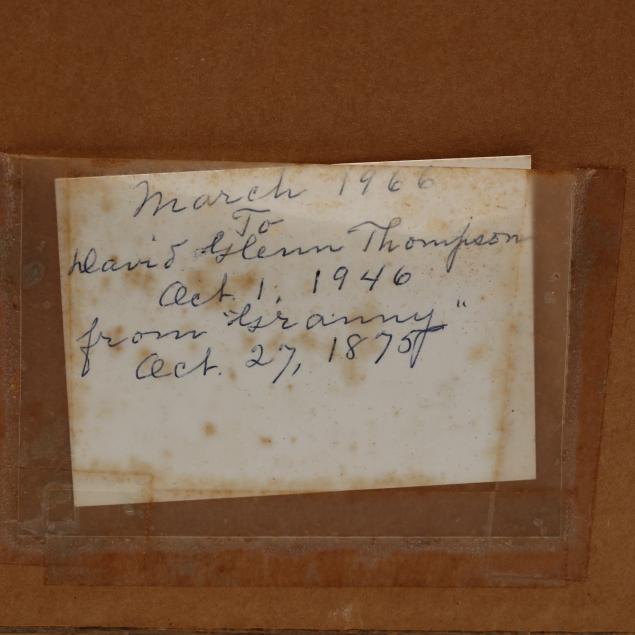 March 1966
To
David Glenn Thompson
Oct. 1, 1946
from "Granny"
Oct. 27, 1875